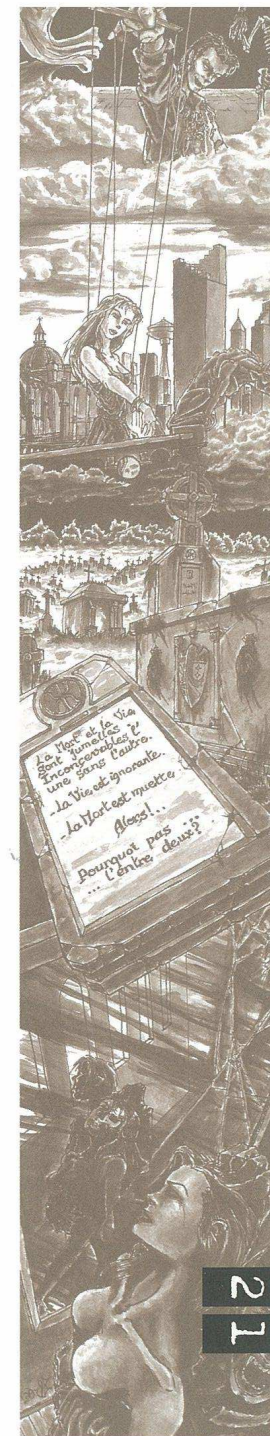 La Mort et la Vie
sont jumelles !
Inconcevables l'
une sans l'autre.
..La Vie est ignorante..
..La Mort est muette..
Alors!..
Pourquoi pas ...
... l'entre deux?
21